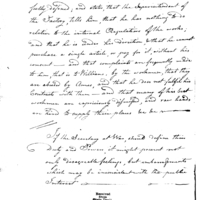 fully defend, and state, that the Superintendent of
the Factory tells him that he has nothing to do in
relation to the internal Regulations of the works,
and that he is under his direction & that he cannot
purchase a single article, or pay for it, without his
consent — and that complaints are frequently made
to him, that is to Williams, by the workmen, that they
are abused by Ames, and that he does not fulfil his
Contracts with them, and that many of his best
workmen are and can hands
on hand to supply their places can be
If the Secretary at War, could define their
Duty and Powers it might prevent not
only disagreeable feelings, but embarrassments
which may be inconsistent with the public
Interest